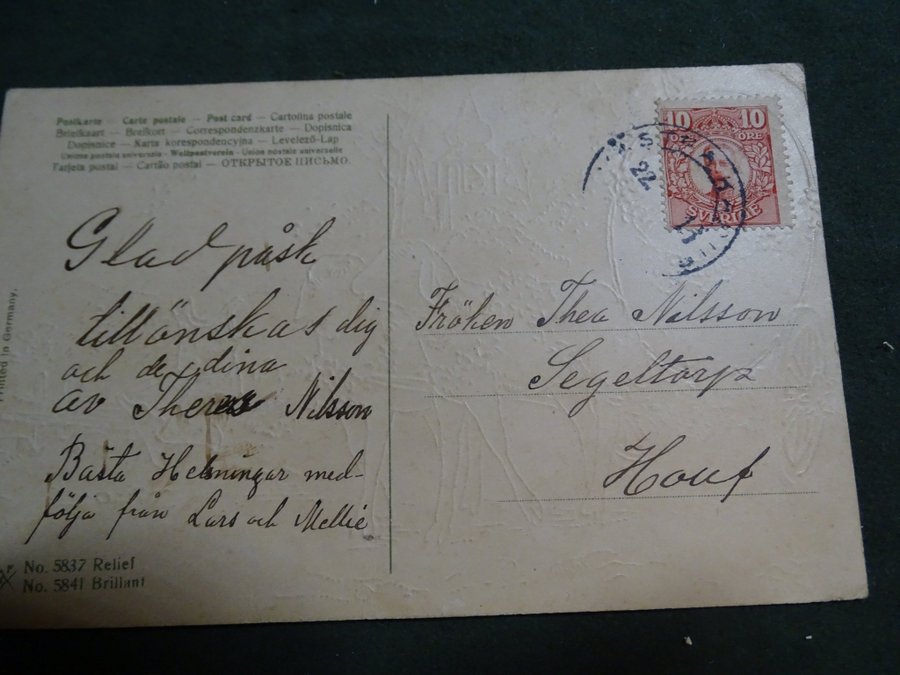 Postkarte — Carte postale — Post card — Cartolina postale
Briefkaart — Brefkort — Correspondenzkarte — Dopisnica
Dopisnice — Karta korespondencyjna — Levelező-Lap
Unione postale universale — Weltpostverein — Union postale universelle
Tarjeta postal — Cartão postal — ОТКРЫТОЕ ПИСЬМО.
Glad påsk
tillönskas dig
och de dina
av Nilsson
Bästa Helsningar med-
följa från Lars och Mellie
Printed in Germany.
No. 5837 Relief
No. 5841 Brillant
10 10
ÖRE
SVERIGE
22
Fröken Thea Nilsson
Segeltorp